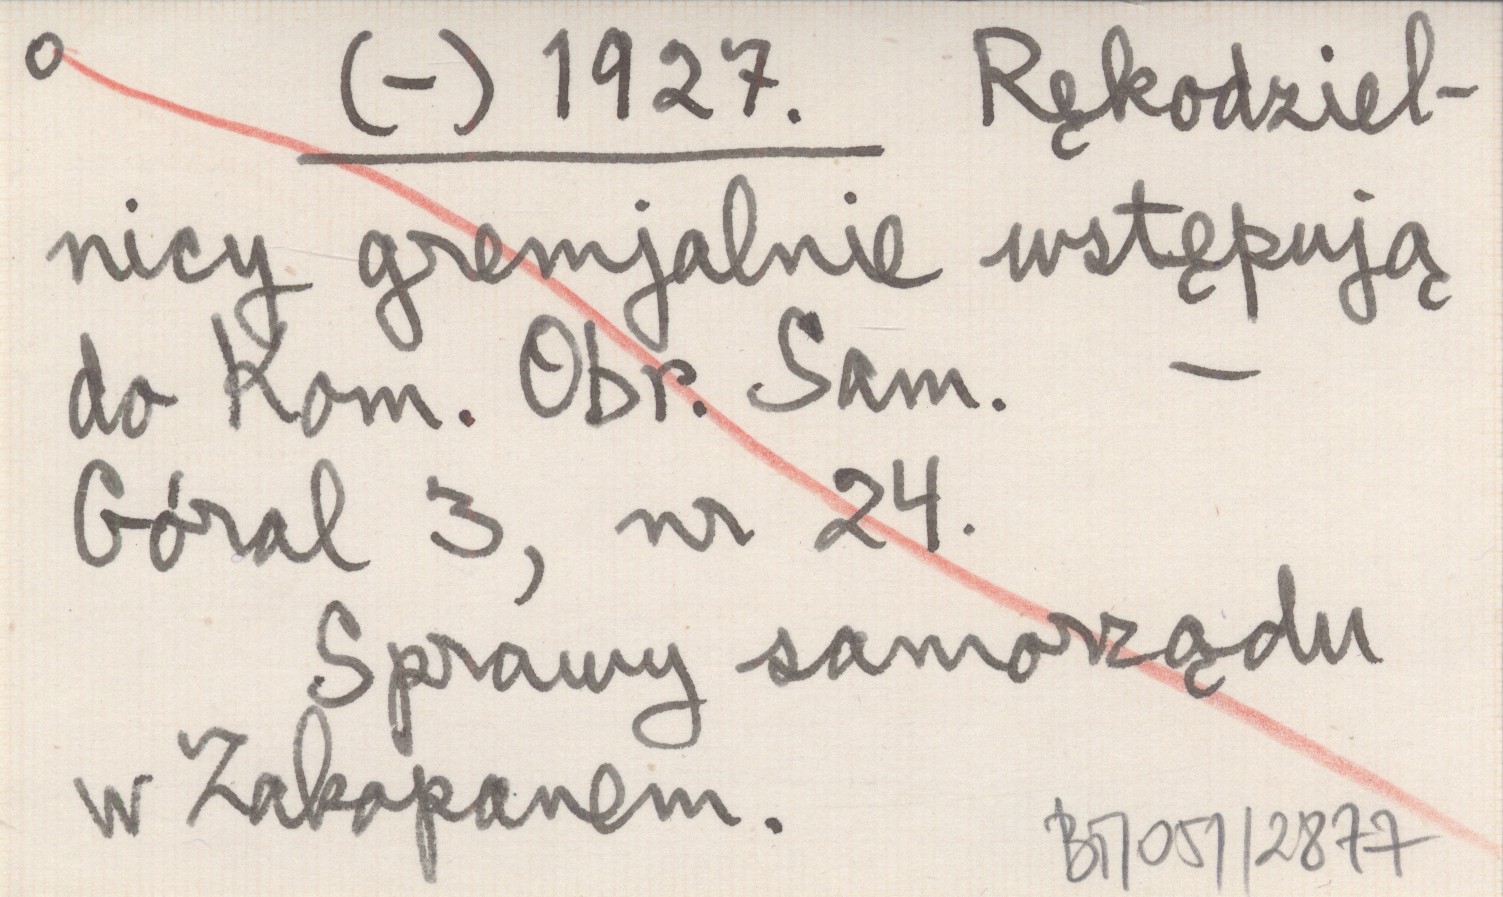 o (-) 1927. Rękodziel-
nicy gremjalnie wstępują
do Kom. Obr. Sam. —
Góral 3, nr 24.
Sprawy samorządu
w Zakopanem.
BT/051/2877